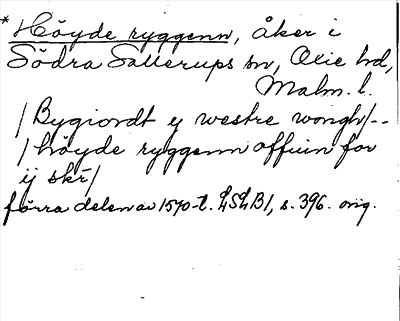 * Höyde ryggenn, åker i
Södra Sallerups sn, Oxie hd,
Malm. l.
/Bygiordt ij westre wongh/--
/höyde ryggenn offuin for
ij skr/
förra delen av 1570-t. LSLB1, s. 396. orig.